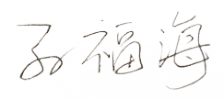 孙福海